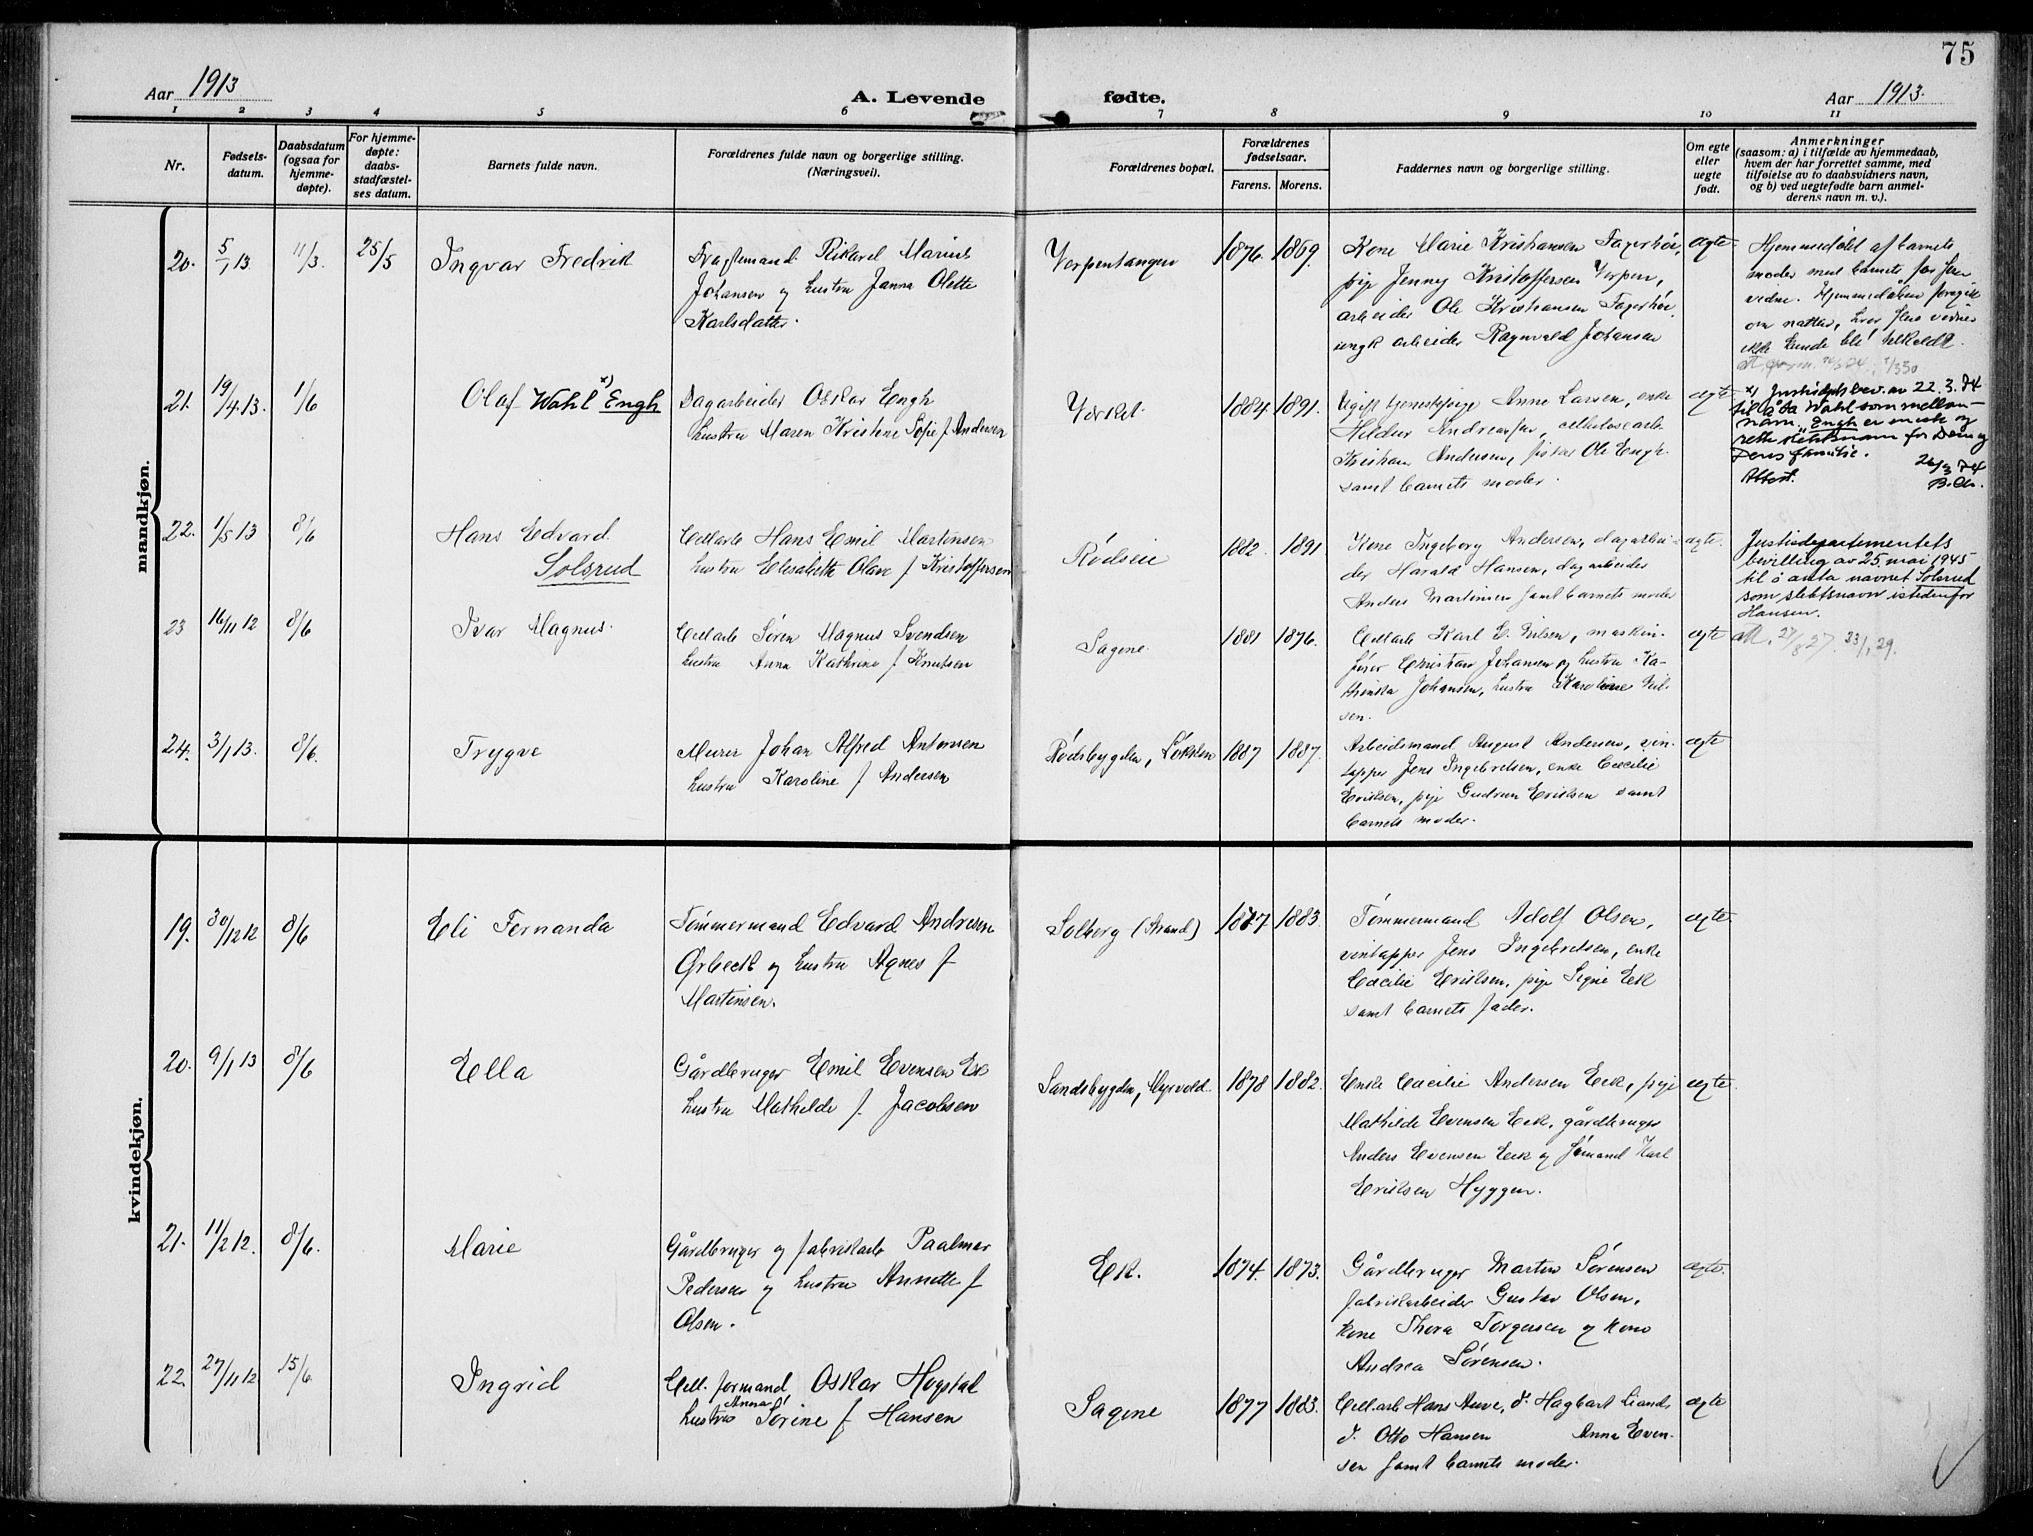 75
Aar 1913
A. Levende
fødte.
Aar 1913.
1 2 3 4 5 6 7 8 9 10 11
Nr.
Fødsels-
datum.
Daabsdatum
(ogsaa for
hjemme-
døpte).
For hjemme-
døpte:
daabs-
stadfæstel-
ses datum.
Barnets fulde navn.
Forældrenes fulde navn og borgerlige stilling.
(Næringsvei).
Forældrenes bopæl.
Forældrenes
fødselsaar.
Farens. Morens.
Faddernes navn og borgerlige stilling.
Om egte
eller
uegte
født.
Anmerkninger
(saasom: a) i tilfælde av hjemmedaab,
hvem der har forrettet samme, med
tilføielse av to daabsvidners navn,
og b) ved uegtefødte barn anmel-
derens navn m. v.).
mandkjøn.
20. 5/1 13. 11/3. 25/5
Ingvar Fredrik
Fragtemand Rikard Marius
Johansen og hustru Janna Olette
Karlsdatter.
Verpentangen
1876. 1869.
Kone Marie Kristiansen Fagerhøi,
pige Jenny Kristoffersen Verpen,
arbeider Ole Kristiansen Fagerhøi,
ungk arbeider Ragnvald Johansen
ægte
Hjemmedøbt af barnets
moder med barnets far som
vidne. Hjemmedåben foregik
om natten, hvor flere vidner
ikke kunde bli tilkaldt.
21. 19/4 13. 1/6
Olaf Wahl x) Engh
Dagarbeider Oskar Engh
hustru Maren Kristine Sofie f Andersen
Verket.
1884. 1891.
Ugift tjenestepige Anne Larsen, enke
Hildur Andreassen, cellulosearb.
Kristian Andersen, fisker Ole Engh.
samt barnets moder.
ægte
x) Justisdptsbev. av 22.3.74
til å ta Wahl som mellom-
navn. "Engh er eneste og
rette slektsnavn for Dem og
Deres familie.
Attest. 26/3 74
B.Ch.
22. 1/5 13 8/6
Hans Edvard
Solsrud
Cellarb Hans Emil Martinsen
hustru Elisabeth Olave f Kristoffersen
Rødseie
1882. 1891.
Kone Ingeborg Andersen, dagarbei-
der Harald Hansen, dagarbeider
Anders Martinsen samt barnets moder
ægte.
Justisdepartementets
bevilling av 25. mai 1945
til å anta navnet Solsrud
som slektsnavn istedenfor
Hansen.
23 16/11 12 8/6
Ivar Magnus.
Cellarb Søren Magnus Svendsen
hustru Anna Kathrine f Knutsen
Sagene.
1881 1876.
Cellarb Karl E. Nilsen, maskin-
fører Christian Johansen og hustru Ka-
thinka Johansen, hustru Karoline Nil-
sen.
ægte
Att. 27/8 27. 23/1 29.
24. 3/1 13. 8/6.
Trygve
Murer Johan Alfred Antonsen
hustru Karoline f Andersen
Rødsbygden, Løkslen
1887 1887.
Arbeidsmand August Andersen, vin-
tapper Jens Ingebretsen, enke Cecilie
Eriksen, pige Gudrun Eriksen samt
barnets moder.
ægte
kvindekjøn.
19. 30/12 12 8/6
Eli Fernanda
Tømmermand Edvard Andresen
Ørbeck og hustru Agnes f
Martinsen.
Solberg (Strand)
1877. 1883.
Tømmermand Adolf Olsen,
vintapper Jens Ingebretsen, enke
Cæcilie Eriksen, pige Signe Eek
samt barnets fader.
ægte
20. 9/1 13 8/6
Ella
Gårdbruger Emil Evensen Ek
hustru Mathilde f. Jacobsen
Sandsbygden, Myrvold.
1878 1882.
Enke Cæcilie Andersen Eek, pige
Mathilde Evensen Eek, gårdbruger
Anders Evensen Eek og sømand Karl
Eriksen Hyggen.
ægte.
21. 11/2 12. 8/6.
Marie
Gårdbruger og fabrikarb Paalmer
Pedersen og hustru Annette f
Olsen.
Ek.
1874. 1873.
Gårdbruger Martin Sørensen
fabrikarbeider Gustav Olsen,
kone Thora Torgersen og kone
Andrea Sørensen.
ægte.
22. 27/11 12 15/6
Ingrid
Cell. formand Oskar Hogstal
hustru Anna Sørine f Hansen
Sagene
1877 1883.
Cell.arb Hans Auve, d. Hagbart Liand,
d. Otto Hansen Anna Even-
sen samt barnets moder.
ægte